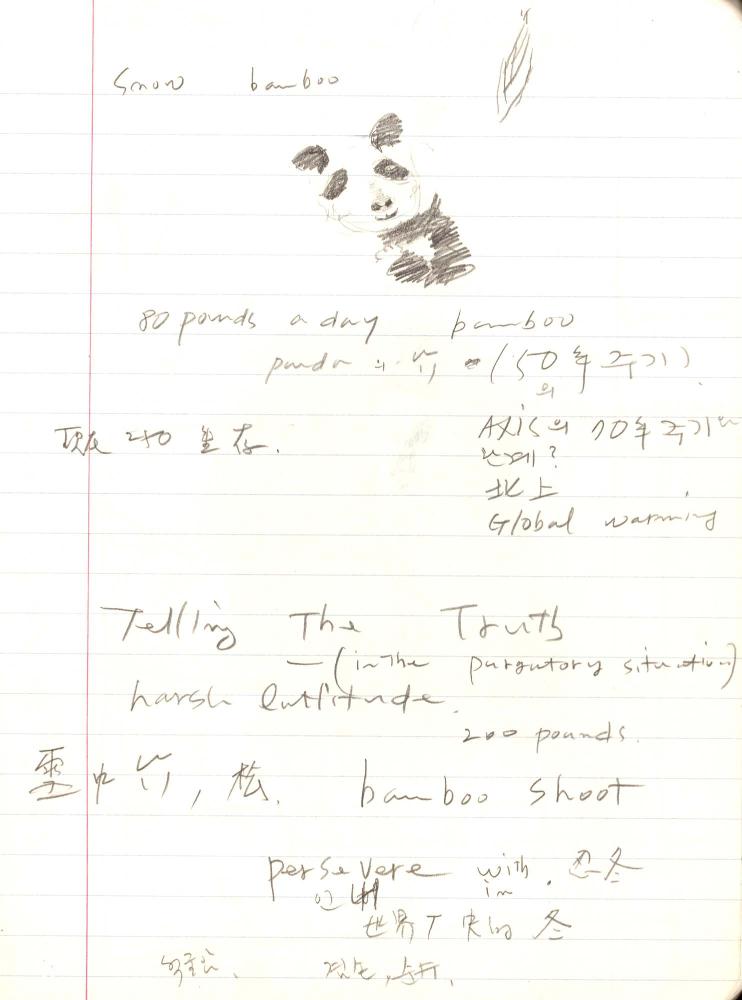 Snow bamboo
80 pounds a day bamboo
panda 의 竹 (50年 주기)
의
AXIS의 70年 주기
관계?
현재 250 生存.
北上
Global warming
Telling The Truth
— (in The purgatory situation)
harsh
200 pounds.
雪中竹, 松. bamboo shoot
persevere with. 忍冬
in
世界 的 冬